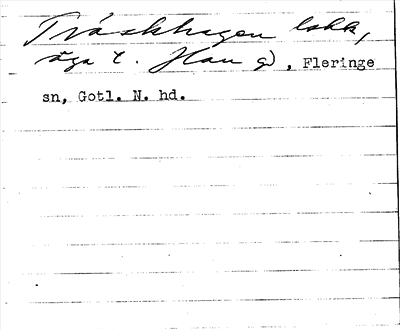 Träskhagen lokk,
äga t. Hau gd, Fleringe
sn, Gotl. N. hd.